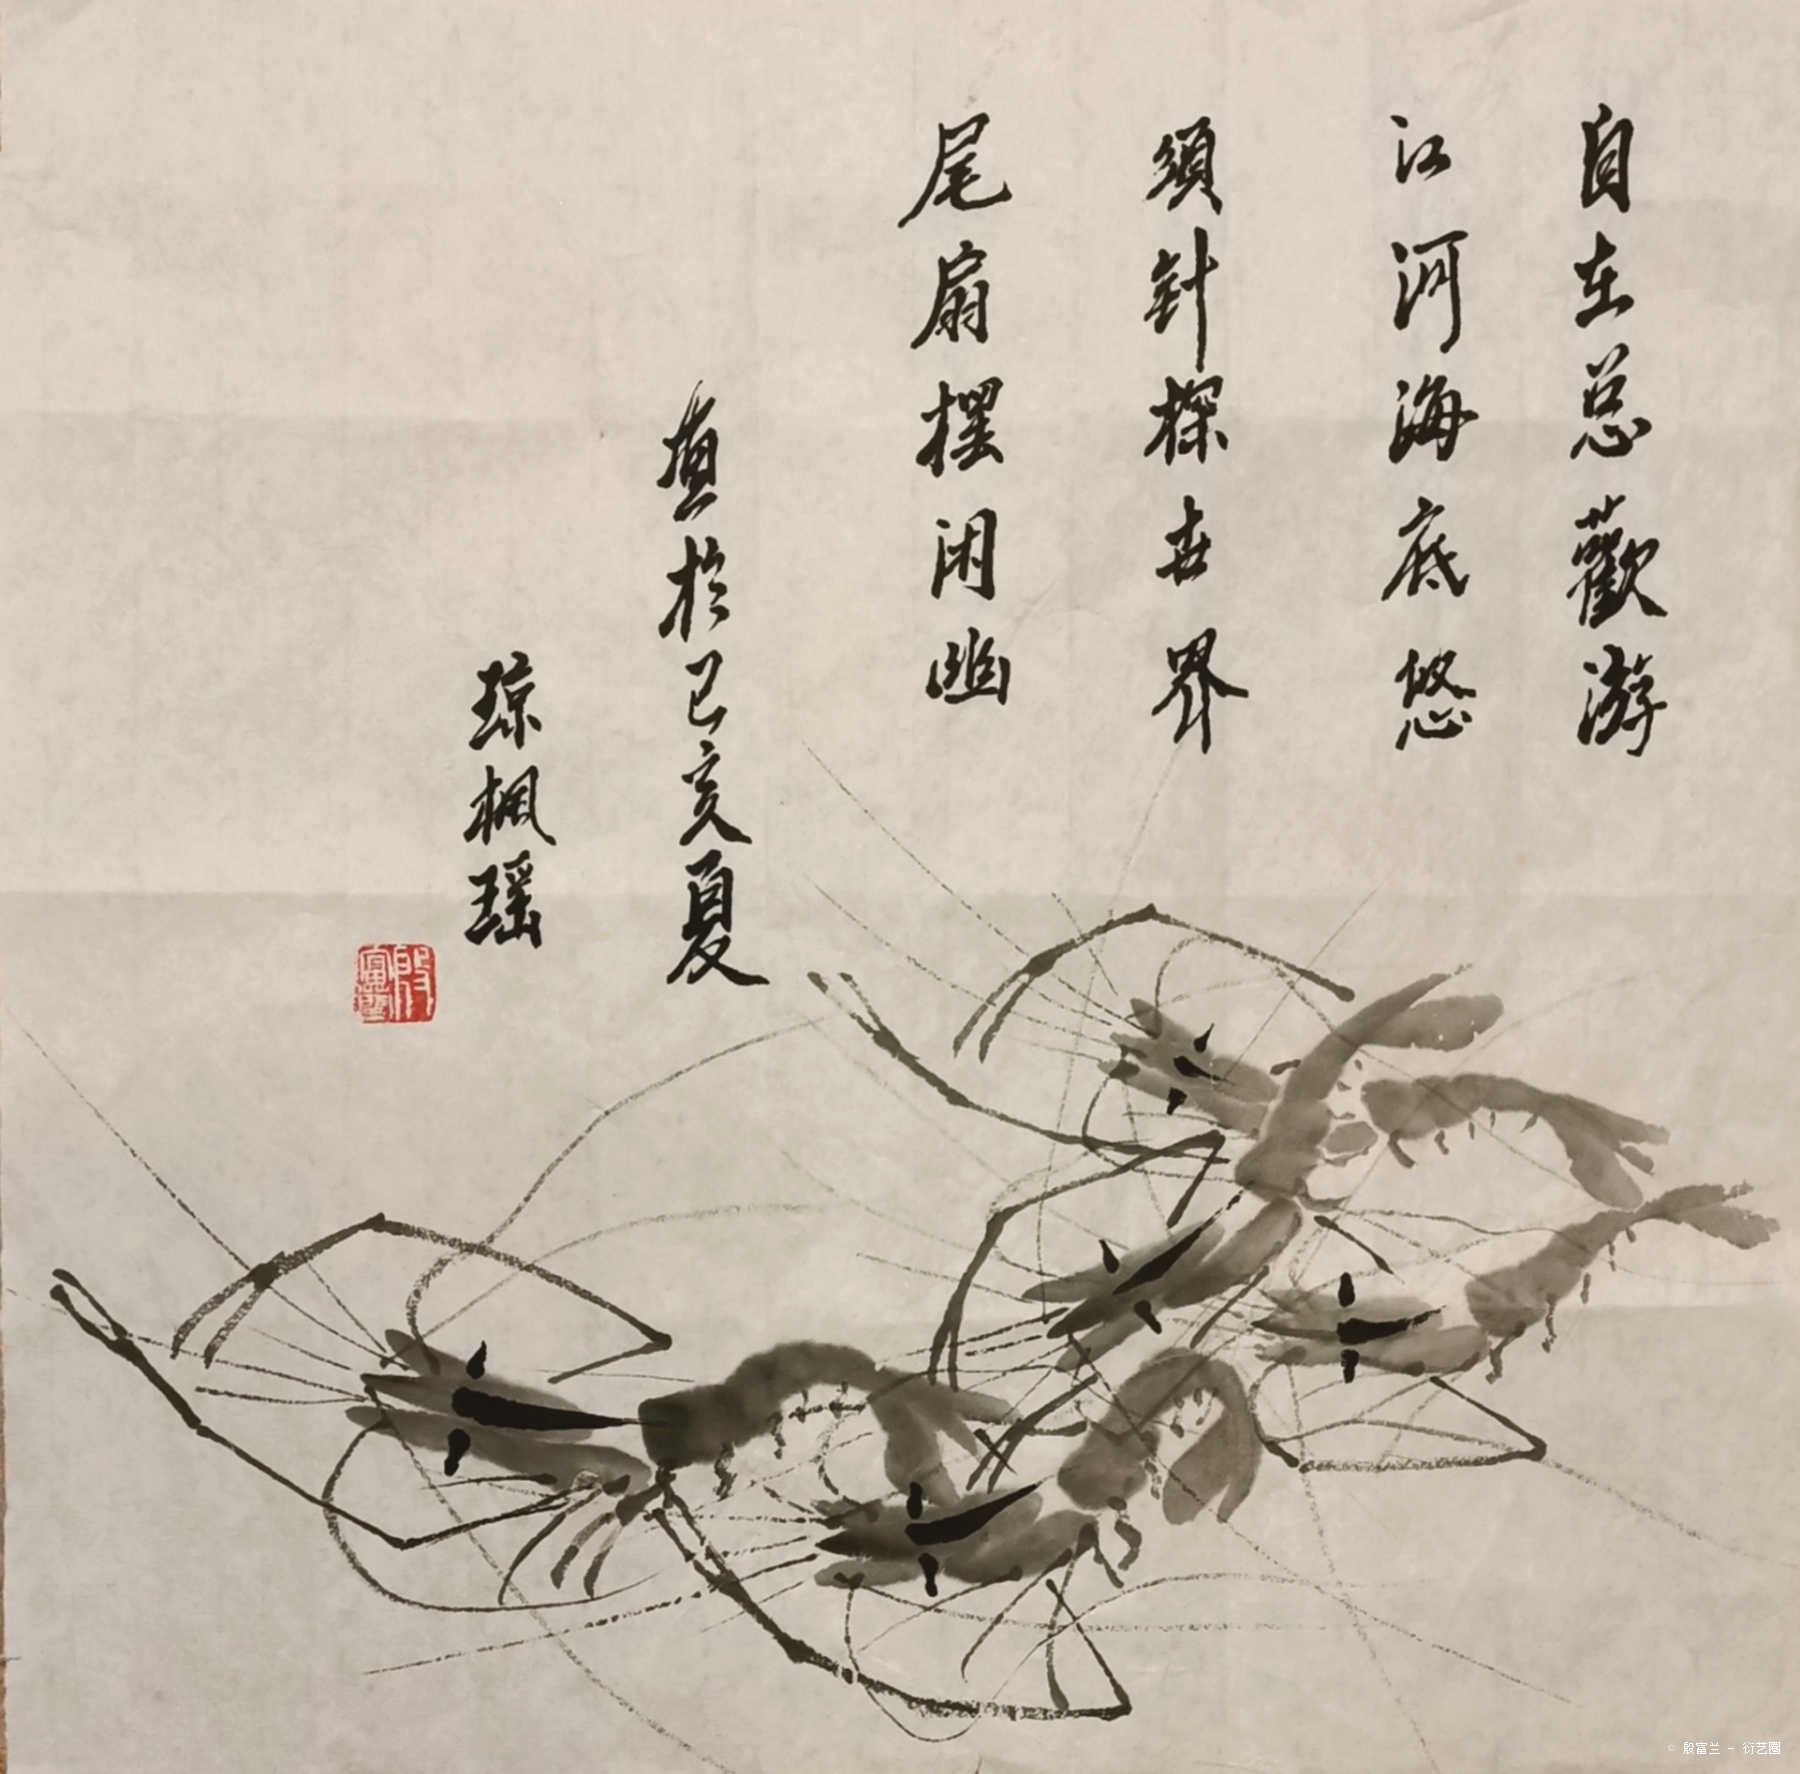 自在总歡游
江河海底悠
須針探世界
尾扇摆闲幽
画於己亥夏
琼楓瑶
殷富蘭
© 殷富兰 - 衍艺圈